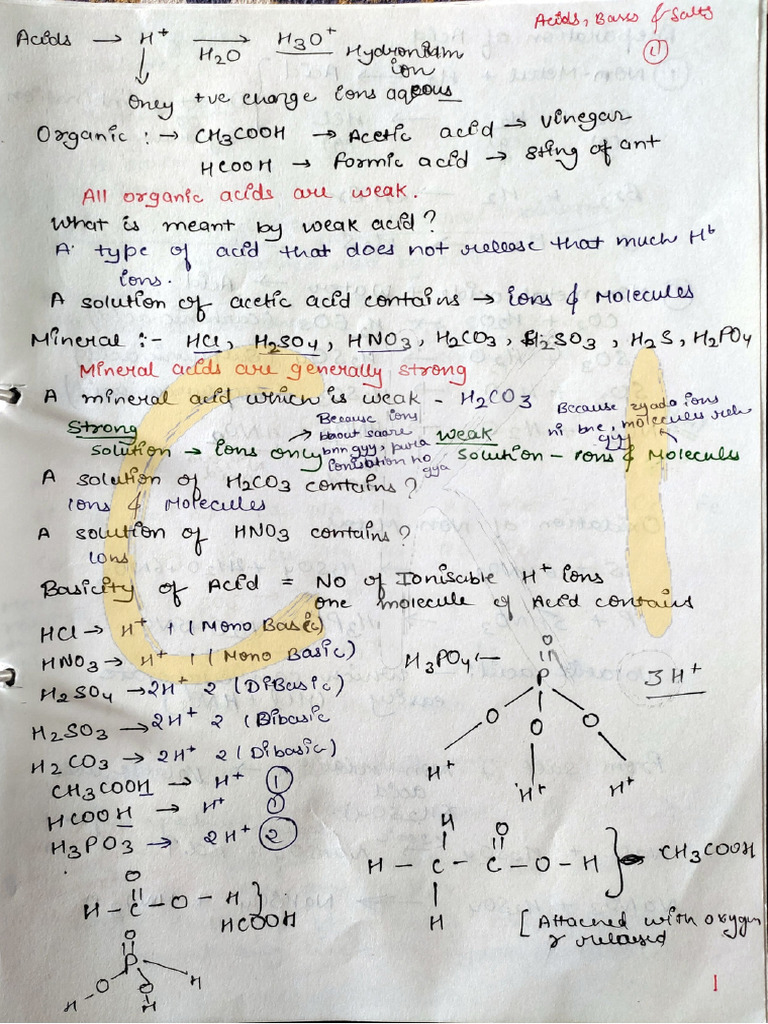 Acids, Bases & Salts
①
Acids → H⁺ → H₂O H₃O⁺ Hydronium ion
↓
Only +ve charge ions aqeous
Organic :→ CH₃COOH → Acetic acid → vinegar
HCOOH → formic acid → sting of ant
All organic acids are weak.
What is meant by weak acid?
A type of acid that does not release that much H⁺
ions.
A solution of acetic acid contains → ions & Molecules
Mineral :- HCl, H₂SO₄, HNO₃, H₂CO₃, H₂SO₃, H₂S, H₂PO₄
Mineral acids are generally strong
A mineral acid which is weak - H₂CO₃
Strong
Solution → Ions only
Because ions
bhaut saare
bnn gyy, pura
Ionisation ho
gya
Weak
Solution - Ions & Molecules
Because zyada ions
ni bne, molecules reh
gyy
A solution of H₂CO₃ contains?
Ions & Molecules
A solution of HNO₃ contains?
Ions
Basicity of Acid = No of Ionisable H⁺ ions
one molecule of Acid contains
HCl → H⁺ 1 (Mono Basic)
HNO₃ → H⁺ 1 (Mono Basic)
H₂SO₄ → 2H⁺ 2 (DiBasic)
H₂SO₃ → 2H⁺ 2 (Bibasic
H₂CO₃ → 2H⁺ 2 (Dibasic)
CH₃COOH → H⁺ ①
HCOOH → H⁺ ①
H₃PO₃ → 2H⁺ ②
H₃PO₄ :—
O
P
3H⁺
O O O
H⁺ H⁺ H⁺
H O
H - C - C - O - H } CH₃COOH
H
[Attached with oxygen
r released]
O
H - C - O - H } HCOOH
O
P
O O H
H H
1